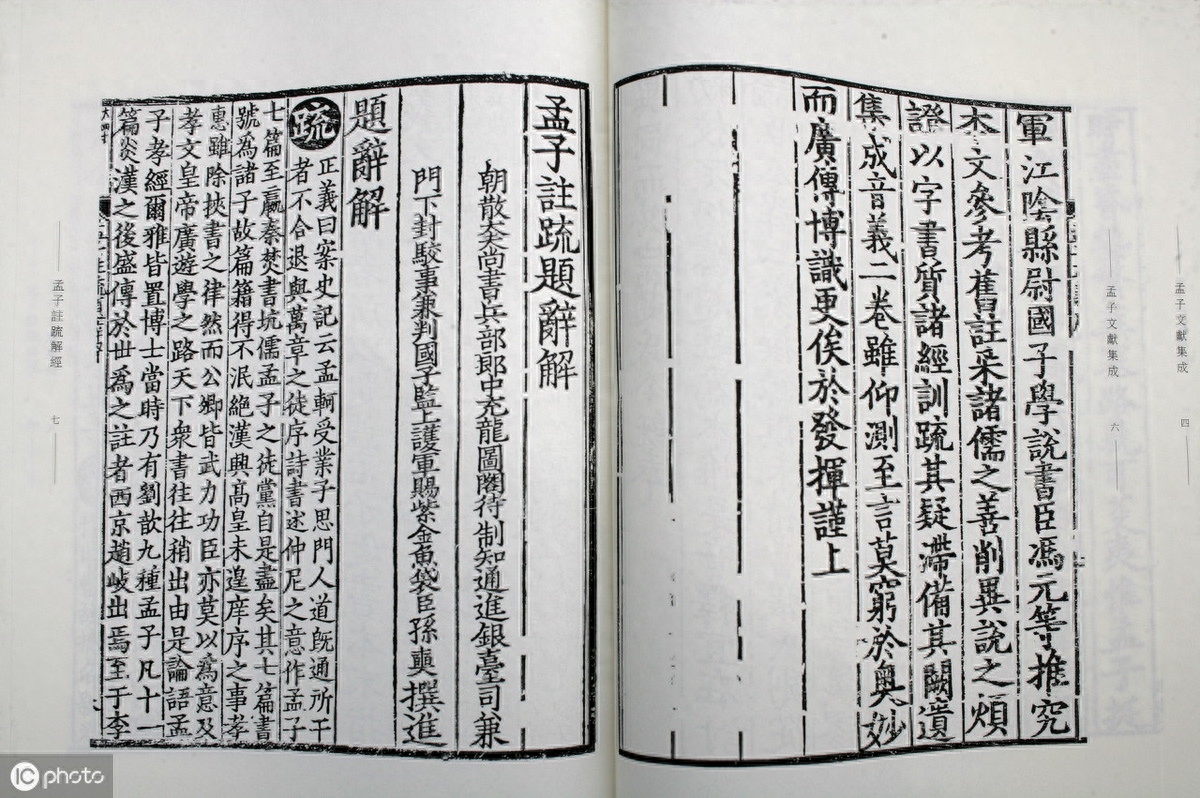 軍江陰縣尉國子學說書臣馮元等推究
本文參考舊註采諸儒之善削異說之煩
證以字書質諸經訓疏其疑滯備其闕遺
集成音義二卷雖仰測至言莫窮於奧妙
而廣傳博識更俟於發揮謹上
孟子註疏題辭解
朝散大夫尚書兵部郎中充龍圖閣待制知通進銀臺司兼
門下封駁事兼判國子監上護軍賜紫金魚袋臣孫奭撰進
題辭解
疏正義曰案史記云孟軻受業子思門人道旣通所干
者不合退與萬章之徒序詩書述仲尼之意作孟子
七篇至嬴秦焚書坑儒孟子之徒黨自是盡矣其七篇書
號爲諸子故篇籍得不泯絕漢興高皇未遑庠序之事孝
惠雖除挾書之律然而公卿皆武力功臣亦莫以爲意及
孝文皇帝廣遊學之路天下衆書往往稍出由是論語孟
子孝經爾雅皆置博士當時乃有劉歆九種孟子凡十一
篇炎漢之後盛傳於世爲之註者西京趙岐出焉至于李
孟子文獻集成
四
孟子文獻集成
六
孟子註疏解經
七
IC photo